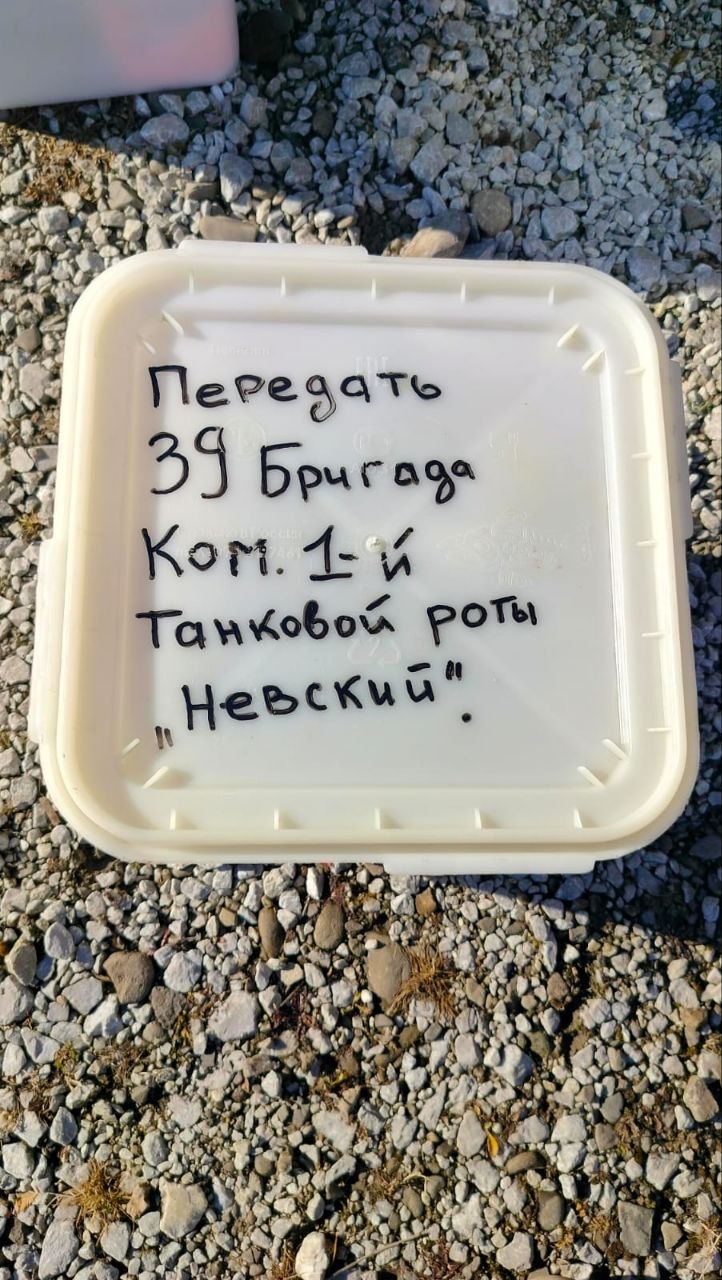 Передать
39 Бригада
Ком. 1-й
Танковой роты
„Невский".